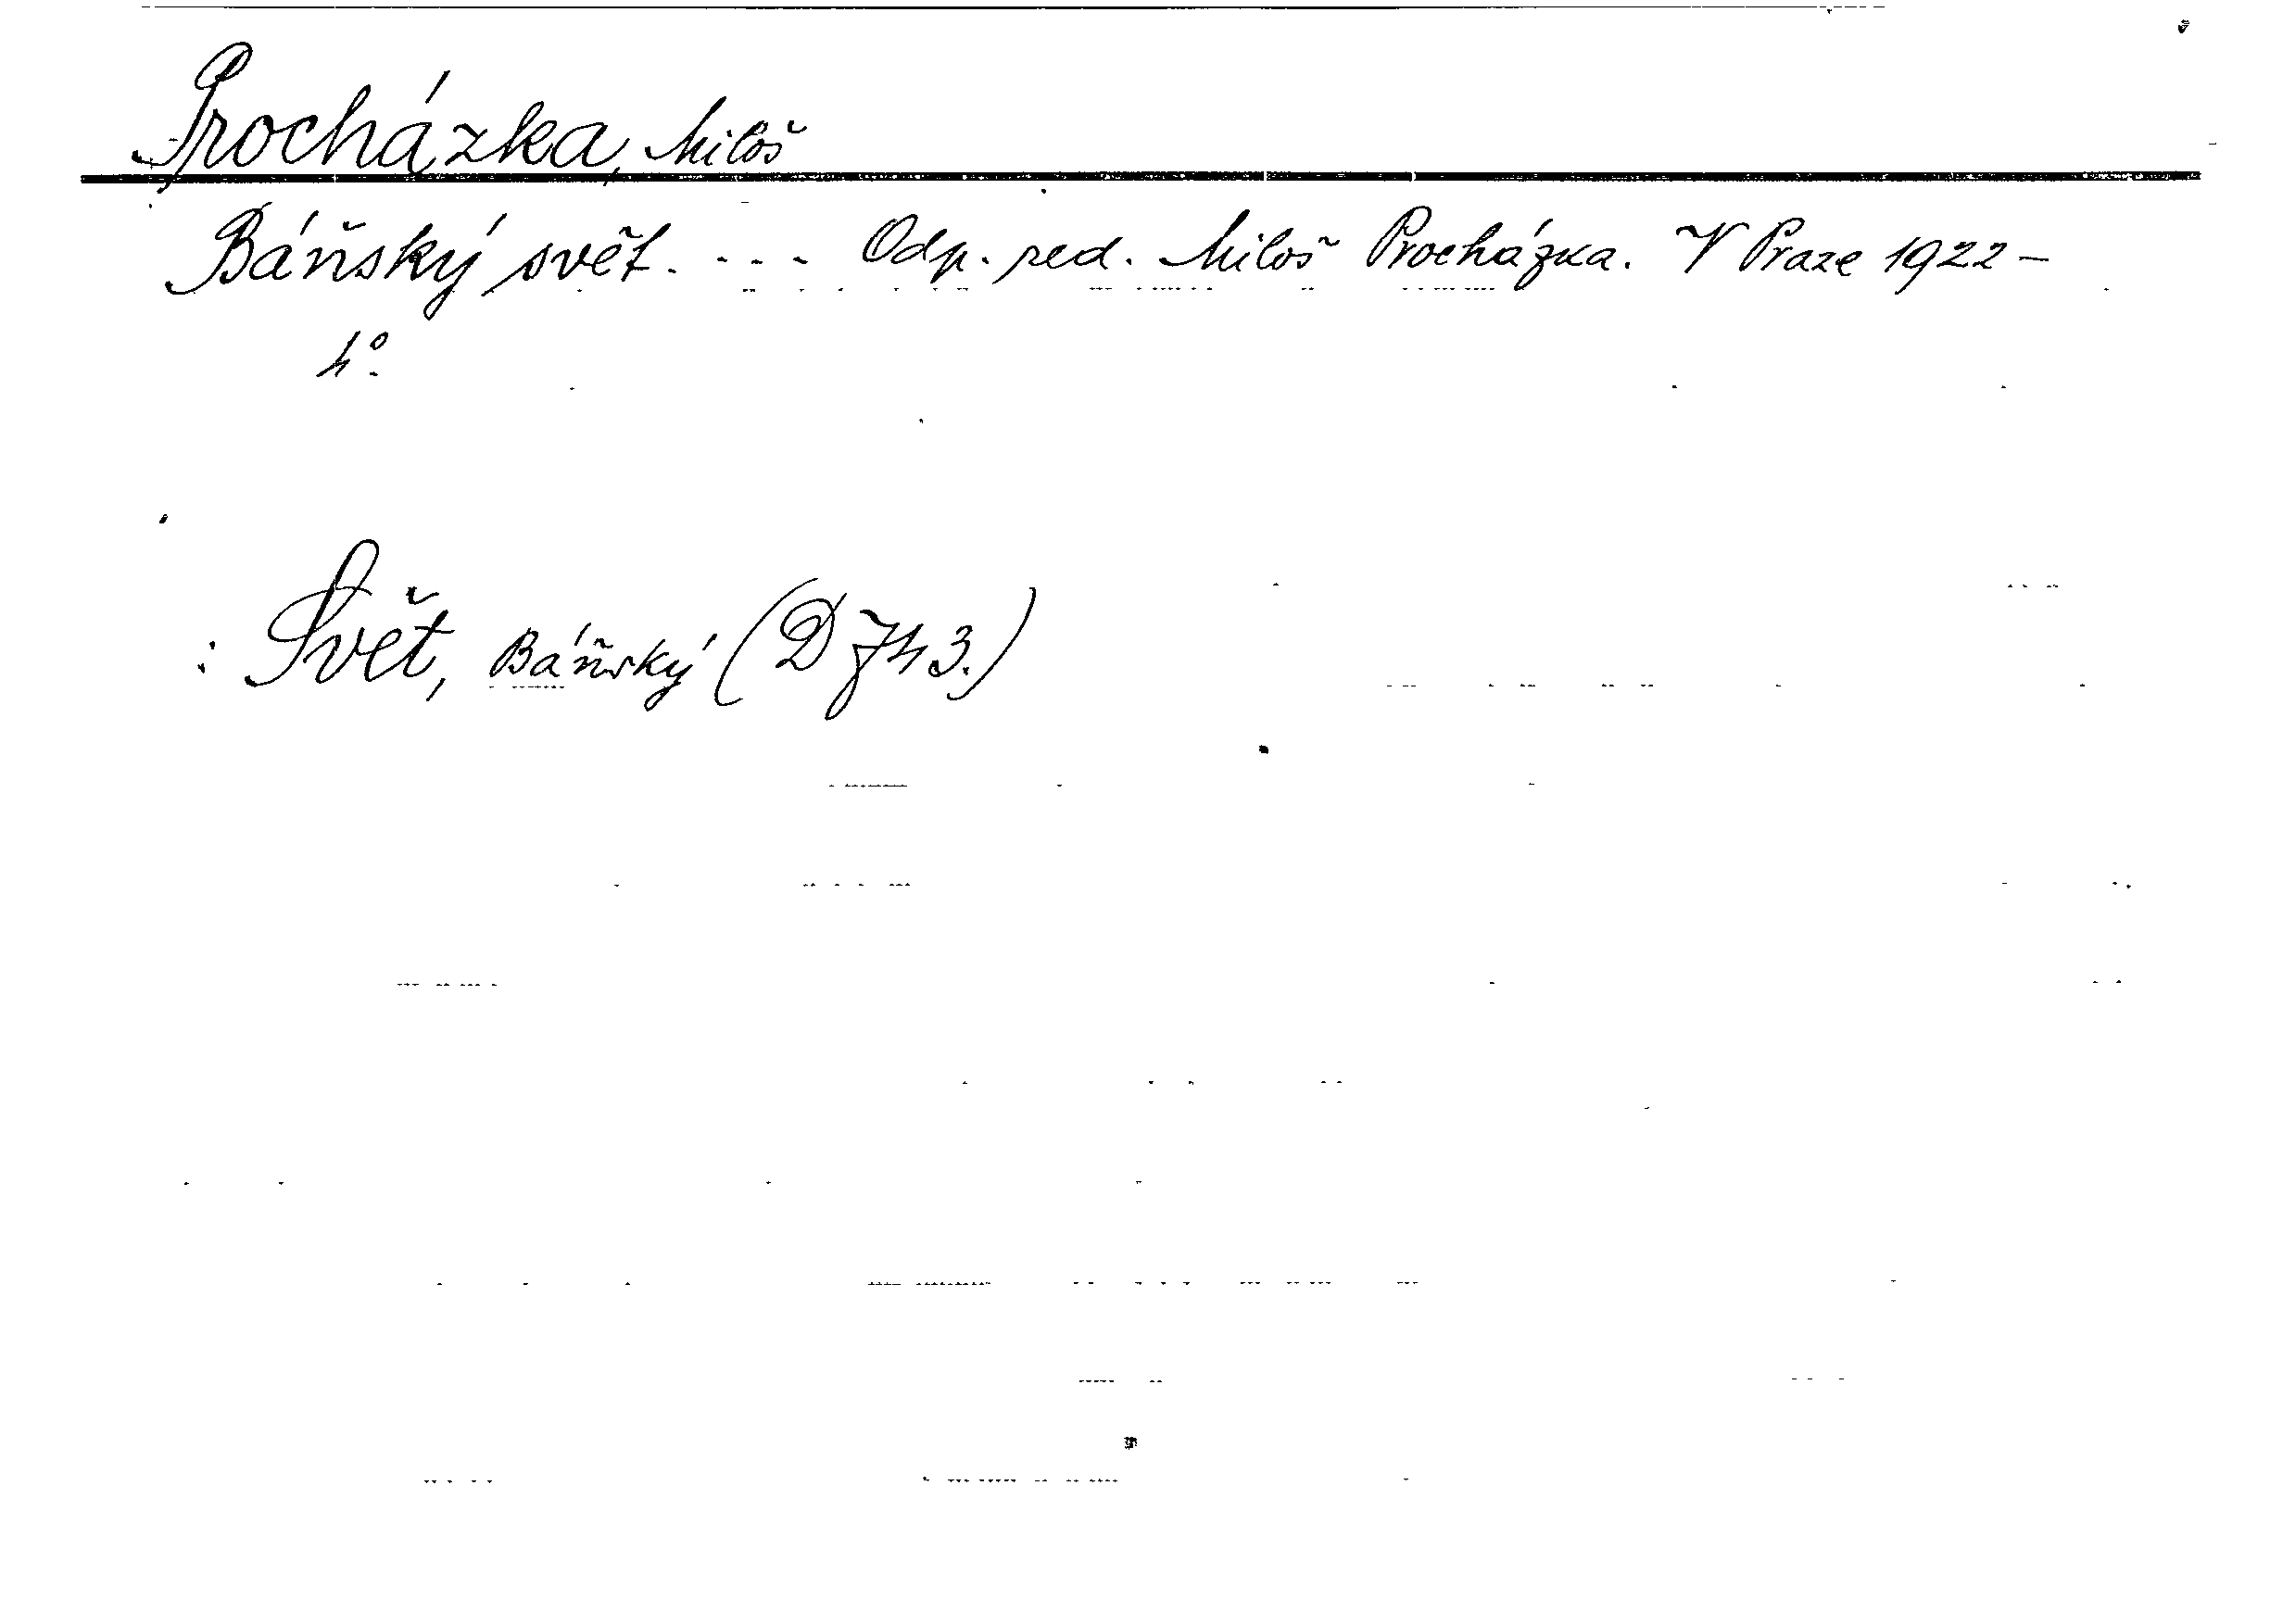 Procházka, Miloš
Báňský svět. - - - Odp. red. Miloš Procházka. V Praze 1922 –
4°.
: Svět, Báňský (D 743.)